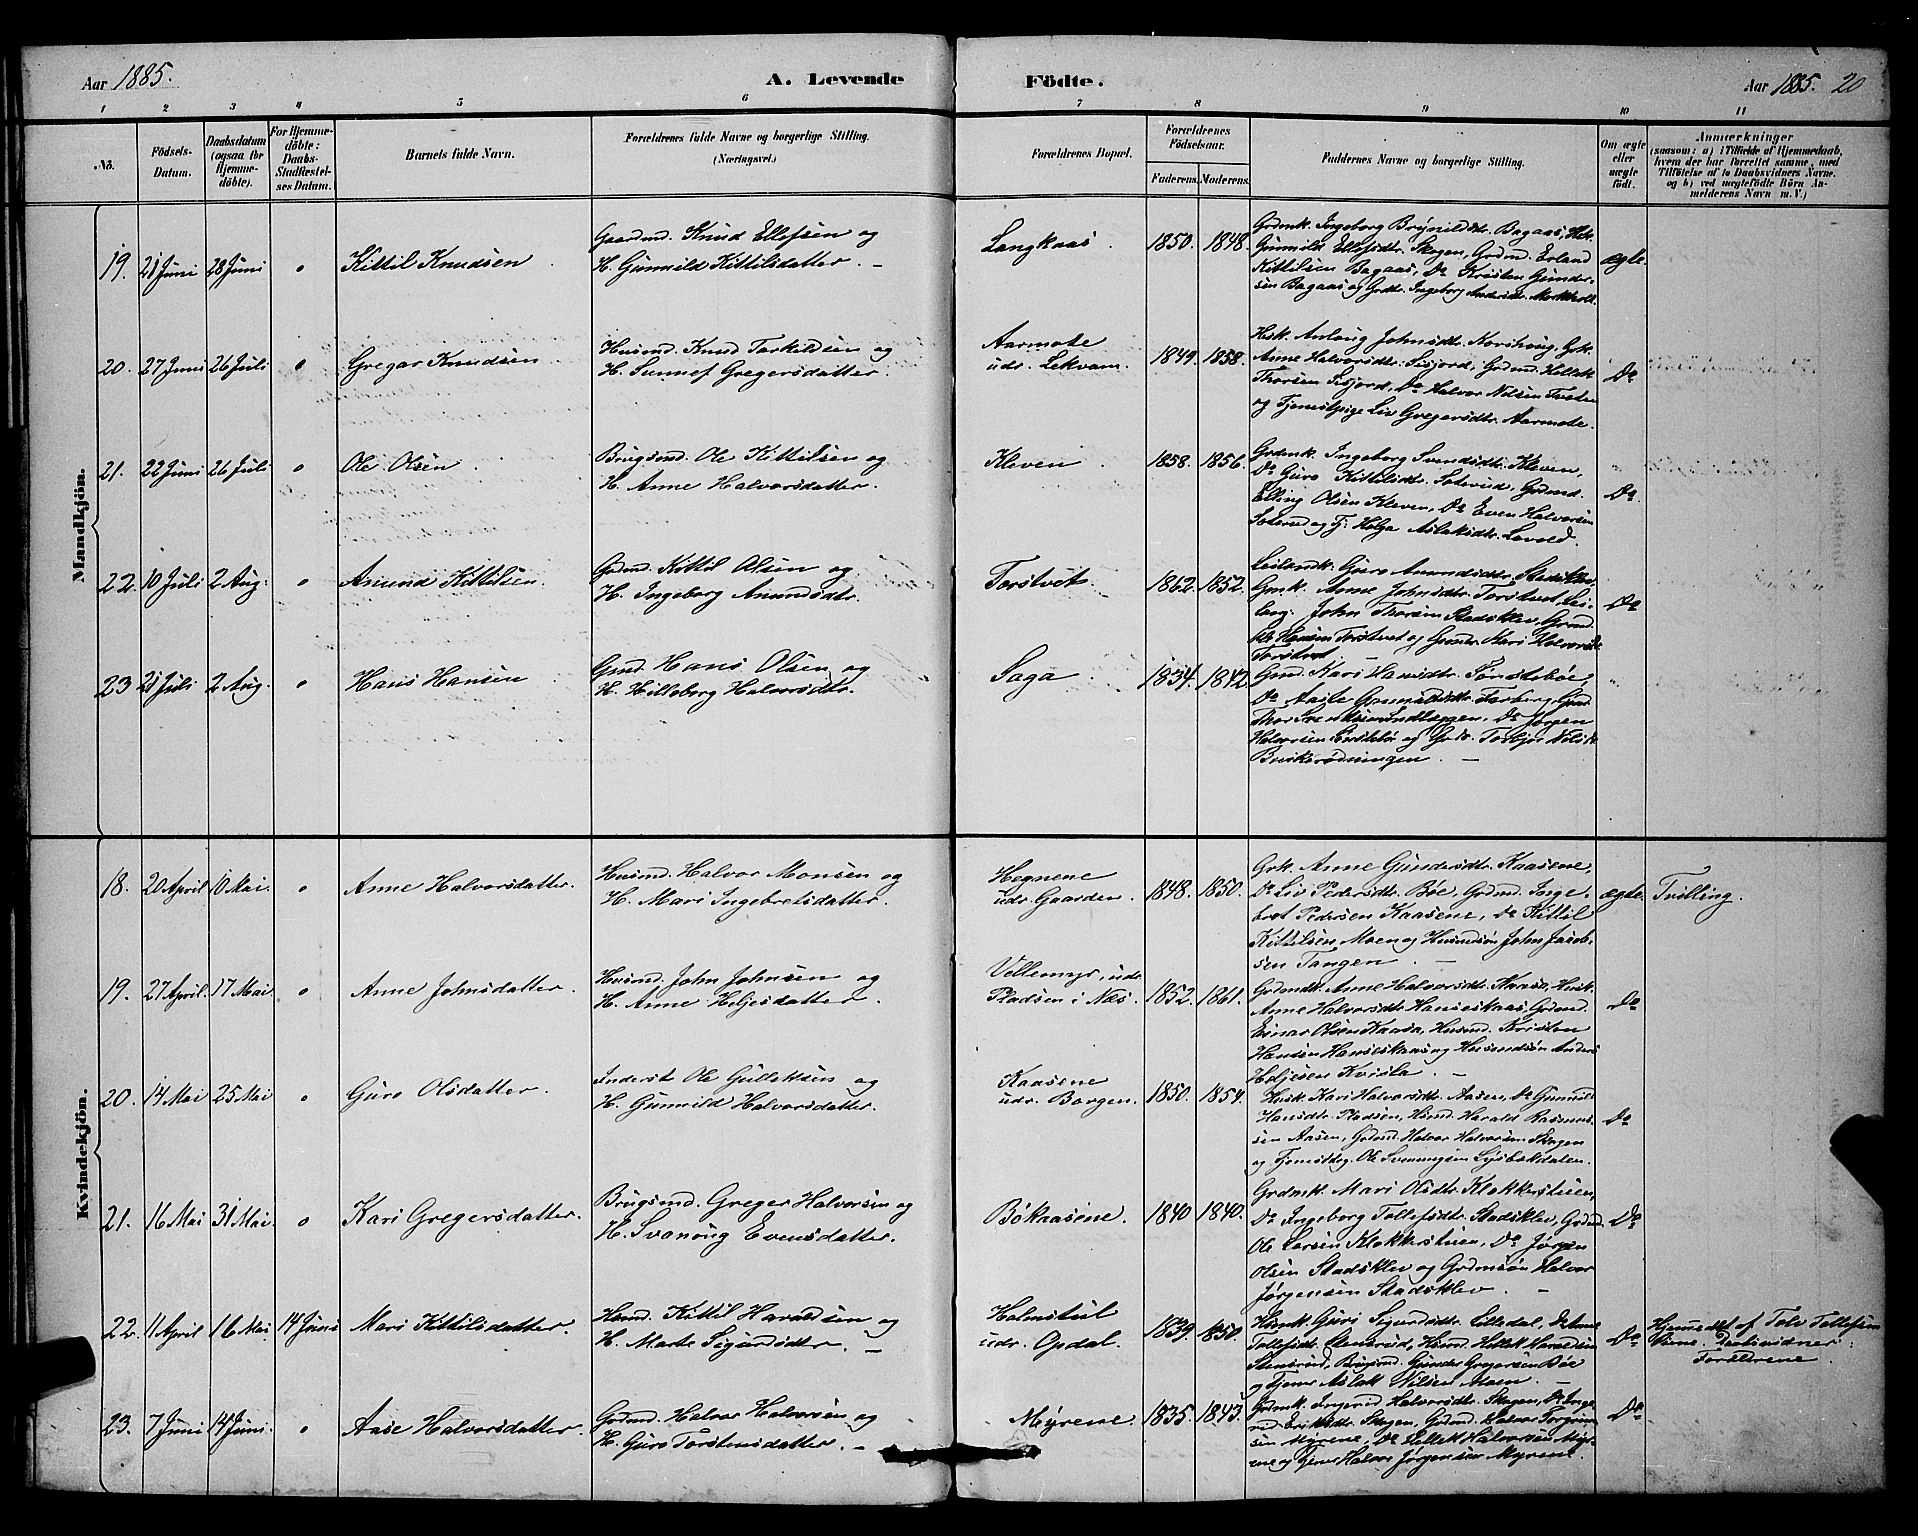 Aar 1885.
A. Levende Födte.
Aar 1885. 20
1 2 3 4 5 6 7 8 9 10 11
No.
Födsels-Datum.
Daabsdatum (ogsaa for Hjemmedöbte).
For Hjemmedöbte: Daabs-Stadfæstelses Datum.
Barnets fulde Navn.
Forældrenes fulde Navne og borgerlige Stilling. (Næringsvei.)
Forældrenes Bopæl.
Forældrenes Födselsaar.
Faderens. Moderens.
Faddernes Navne og borgerlige Stilling.
Om ægte eller uægte födt.
Anmærkninger
(saasom: a) i Tilfælde af Hjemmedaab, hvem der har forrettet samme, med Tilföielse af to Daabsvidners Navne, og b) ved uægtefödte Börn Anmelderens Navn m. V.)
Mandkjön.
19. 21 Juni 28 Juni o Kittil Knudsen.
Gaardmd. Knud Ellefsen og
H. Gunnild Kittilsdatter. –
Langkaas. 1850. 1848.
Grdmk. Ingeborg Brynildsdtr. Bagaas, Hsk.
Gunnild Ellefsdtr. Skogen, Grdmd. Erland
Kittilsen Bagaas, Do Kristen Gunder-
sen Bagaas og Grdtr. Ingeborg Andersdtr.
ægte.
20. 27 Juni 26 Juli o Gregar Knudsen.
Husmd. Knud Torkildsen og
H. Sunnef Gregersdatter.
Aarmote
udr. Lekvam. 1849. 1858.
Anne Halvorsdtr. Sisjord, Grdmd. Kittil
Thorsen Sisjord, Do Halvor Nilsen Tveten
og Tjenestpige Liv Gregersdtr. Aarmote.
Do
21. 22 Juni 26 Juli o Ole Olsen
Brugsmd. Ole Kittilsen og
H. Anne Halvorsdatter.
Kleven. 1858. 1856.
Grdmk. Ingeborg Svendsdtr. Kleven,
Do Guro Kittilsdtr. Soterud, Grdmd.
Elling Olsen Kleven, Do Even Halvorsen
Soterud og Tj. Helga Aslaksdtr. Lovold.
Do
22. 10 Juli 2 Aug. o Amund Kittilsen.
Grdmd. Kittil Olsen og
H. Ingeborg Amundsdtr.
Torstvet. 1862. 1852.
Gmk. Anne Johnsdtr. Torstvet, Lei-
læng. John Thorsen Stadsklev, Grmd.
Ole Hansen Torstvet og Grmdtr. Mari Halvorsdtr.
Torstvet.
Do
23 21 Juli 2 Aug. o Hans Hansen
Grmd. Hans Olsen og
H. Hilleborg Halvorsdtr.
Saga 1834. 1842
Grmd. Kari Hansdtr. Forstebøe,
Halvorsen Forstebø og
Buskerødningen. –
Kvindekjön.
18. 20 April 10 Mai. o Anne Halvorsdatter.
Husmd. Halvor Monsen og
H. Mari Ingebretsdatter.
Hognene
udr. Gaarden. 1848. 1850.
Grk. Anne Gundersdtr. Kaasene,
Do Liv Pedersdtr. Bøe, Grdmd. Inge-
bret Pedersen Kaasene, Do Kittil
Kittilsen Moen og Husmdsøn John Jacob-
sen Tangen. –
ægte. Tvilling.
19. 27 April. 17 Mai. o Anne Johnsdatter.
Husmd. John Johnsen og
H. Anne Heljesdatter.
Vellemyr, udr.
Pladsen i Næs. 1852. 1861.
Grdmdtr. Anne Halvorsdtr. Kaasa, Husk.
Anne Halvorsdtr. Hanseskaas, Grdmd.
Einar Olsen Kaasa, Husmd. Kristen
Hansen Hanseskaas og Husmdsøn Anders
Heljesen Kvisla. –
Do
20. 14 Mai 25 Mai o Guro Olsdatter.
Inderst Ole Gulleksen og
H. Gunnild Halvorsdatter.
Kaasene
udr. Borgen. 1850. 1854.
Husk. Kari Halvorsdtr. Aasen, Do Gunnild
Hansdtr. Pladsen, Hsmd. Harald Rasmus-
sen Aasen, Grdmd. Halvor Halvorsen Skogen
og Tjenestdrg. Ole Svenningsen Lysbækdalen.
Do
21. 16 Mai 31 Mai. o Kari Gregersdatter.
Brugsmd. Greger Halvorsen og
H. Svanoug Evensdatter.
Bøkaasene. 1840 1840.
Grdmk. Mari Olsdtr. Klokkerstuen,
Do Ingeborg Tollefsdtr. Stadsklev, Grdmd.
Ole Larsen Klokkerstuen, Do Jørgen
Olsen Stadsklev og Grdmsøn Halvor
Jørgensen Stadsklev. –
Do
22. 11 April 16 Mai 14 Juni Mari Kittilsdatter.
Husmd. Kittil Haraldsen og
H. Marte Sigurdsdtr. –
Holmstul
udr. Opdal. 1839. 1850.
Husmk. Guri Sigurdsdtr. Lilledal, Do Anne
Tollefsdtr. Stensrud, Husmd. Kittil Hansen
Stensrud, Brugsmd. Gunder Gregersen Bøe
og Tjener Aslak Nilsen Moen. –
Do Hjemmedøbt af Tolv Tollefsen
Daabsvidner:
Forældrene.
23. 7 Juni 14 Juni. o Aase Halvorsdatter.
Grdmd. Halvor Halvorsen og
H. Guro Torstensdatter. –
Myrene 1835. 1843.
Grdmk. Ingerid Halvorsdtr. Skogen, Do Inge-
rid Eriksdtr. Skogen, Grdmd. Halvor Torgrim-
sen Myrene, Do Kittil Halvorsen Myr-
ene og Tjener Halvor Jørgensen Myrene.
Do